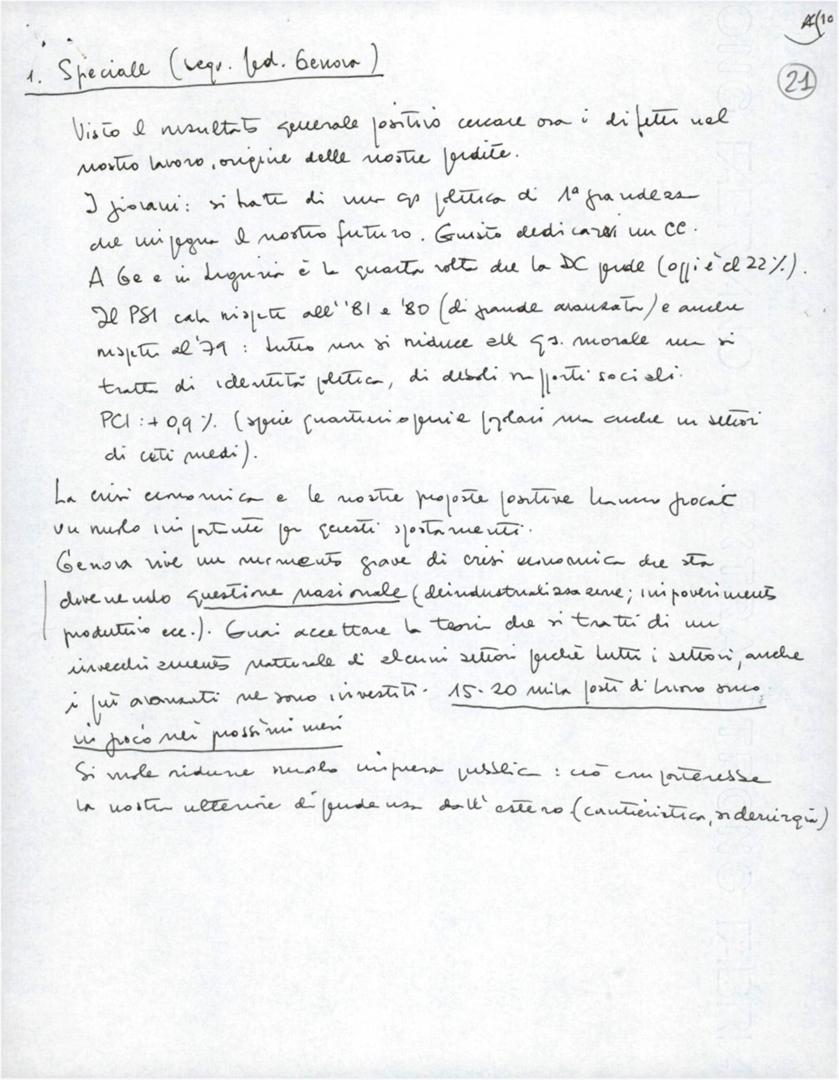 21
1. Speciale (segr. fed. Genova)
Visto il risultato generale positivo cercare ora i difetti nel
nostro lavoro, origine delle nostre perdite.
I giovani: si tratta di una qs politica di 1ª grandezza
che impegna il nostro futuro. Giusto dedicarvi un CC.
A Ge e in Liguria è la quarta volta che la DC perde (oggi è al 22%).
Il PSI cala rispetto all''81 e '80 (di grande avanzata) e anche
rispetto al '79: tutto non si riduce alla qs. morale ma si
tratta di identità politica, di deboli rapporti sociali.
PCI: +0,9%. (specie quartieri operai e popolari ma anche in settori
di ceti medi).
La crisi economica e le nostre proposte positive hanno giocato
un ruolo importante per questi spostamenti.
Genova vive un momento grave di crisi economica che sta
divenendo questione nazionale (deindustrializzazione; impoverimento
produttivo ecc.). Guai accettare la teoria che si tratti di un
invecchiamento naturale di alcuni settori perché tutti i settori, anche
i più avanzati ne sono investiti. 15-20 mila posti di lavoro sono
in gioco nei prossimi mesi
Si vuole ridurre ruolo impresa pubblica: ciò comporterebbe
la nostra ulteriore dipendenza dall'estero (cantieristica, siderurgia)